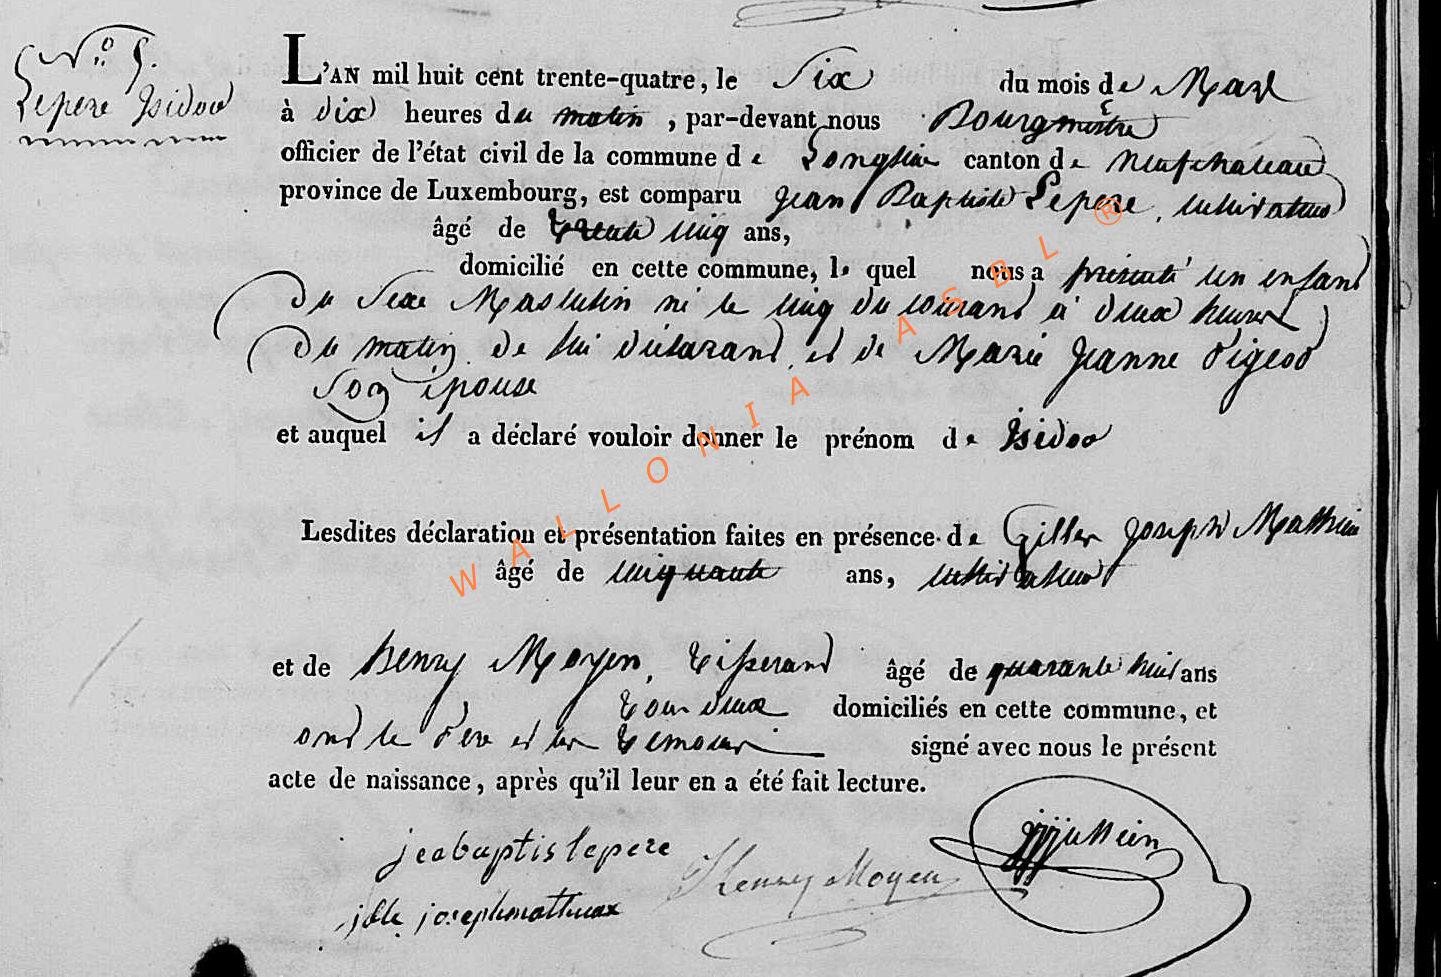 N° 5.
Lepere Isidor
L'AN mil huit cent trente-quatre, le Six du mois de Mars
à dix heures du matin, par-devant nous Bourgmestre
officier de l'état civil de la commune de Longlier canton de Neufchateau
province de Luxembourg, est comparu Jean Baptiste Lepere, cultivateur
âgé de trente cinq ans,
domicilié en cette commune, lequel nous a présenté un enfant
du Sexe Masculin né le cinq du courant à deux heures
du matin, de lui déclarant, et de Marie Jeanne Pigeod
Son épouse
et auquel il a déclaré vouloir donner le prénom de Isidor
Lesdites déclaration et présentation faites en présence de Gilles Joseph Mathieu
âgé de cinquante ans, cultivateur
et de henry Moyen, tisserand âgé de quarante huit ans
tous deux domiciliés en cette commune, et
ont le Père et les temoins signé avec nous le présent
acte de naissance, après qu'il leur en a été fait lecture.
jeabaptis lepere
Henry Moyen
josephmathieux
WALLONIA ASBL ®